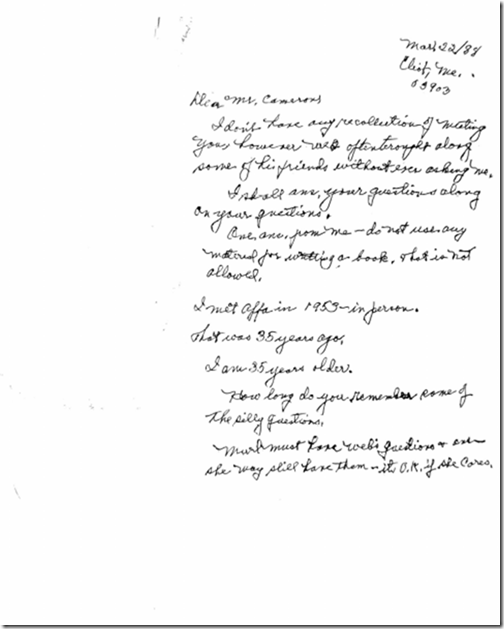 Mar 22/88
Eliot, Me.
03903
Dear Mr. Cameron
I don't have any recollection of meeting
you, however Web often brought along
some of his friends without ever asking me.
I shall ans. your questions along
on your questions.
One ans. from me - do not use any
material for writing a book. That is not
allowed.
I met Affa in 1953 - in person.
That was 35 years ago.
I am 35 years older.
How long do you remember some of
the silly questions.
must have Web's questions &
she may still have them - its O.K. if she cares.